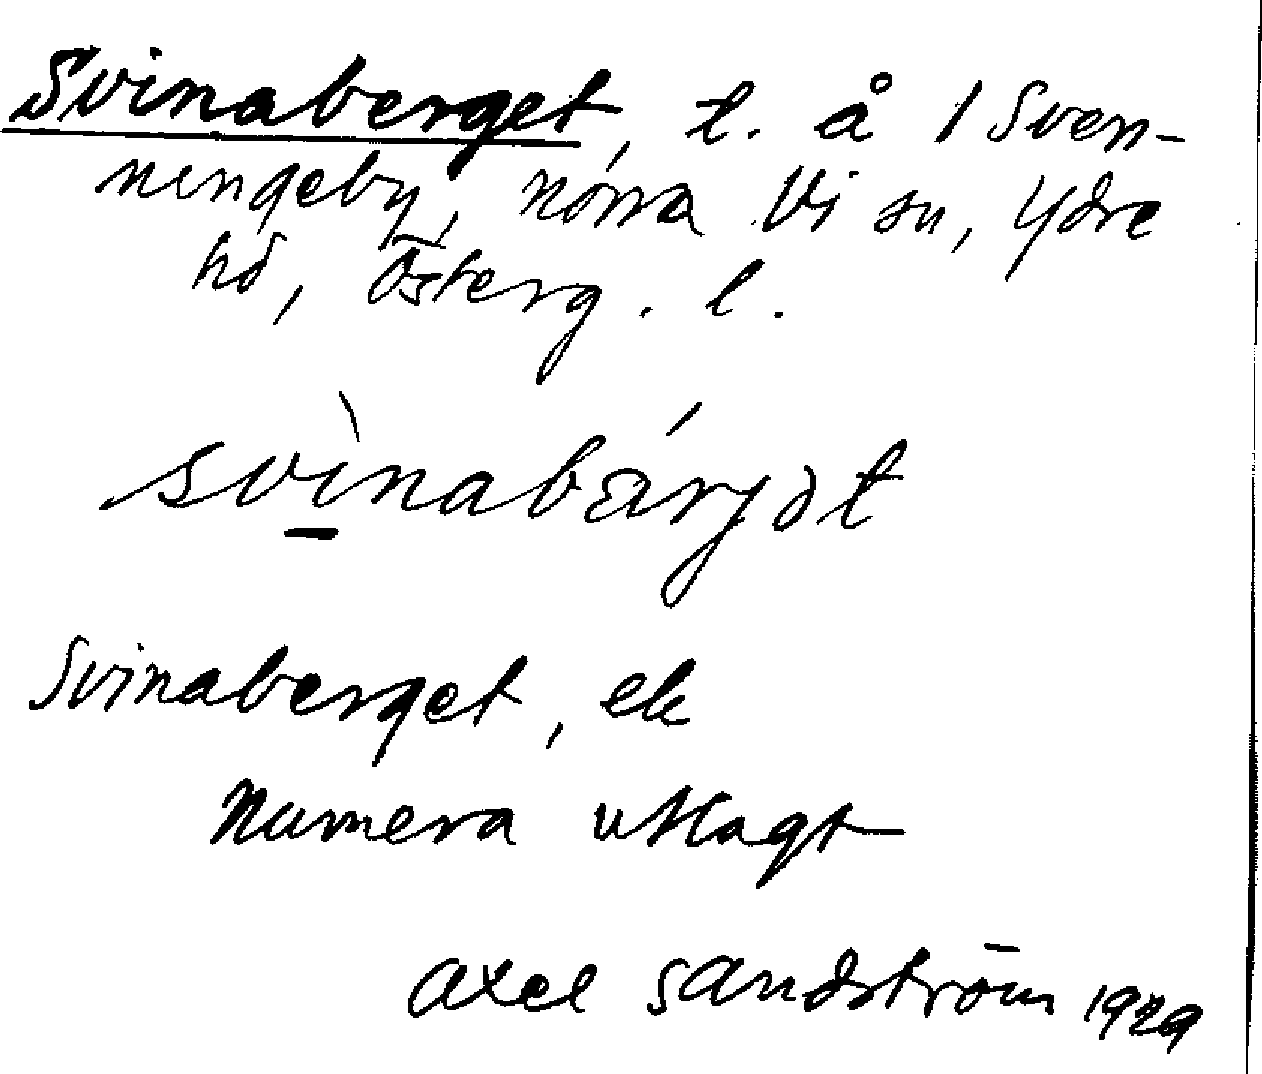 Svinaberget, t. å 1 Sven-
nengeby, Norra Vi sn, Ydre
hd, Österg. l.
svìnabárjət
Svinaberget, ek
Numera utlagt
Axel Sandström 1929